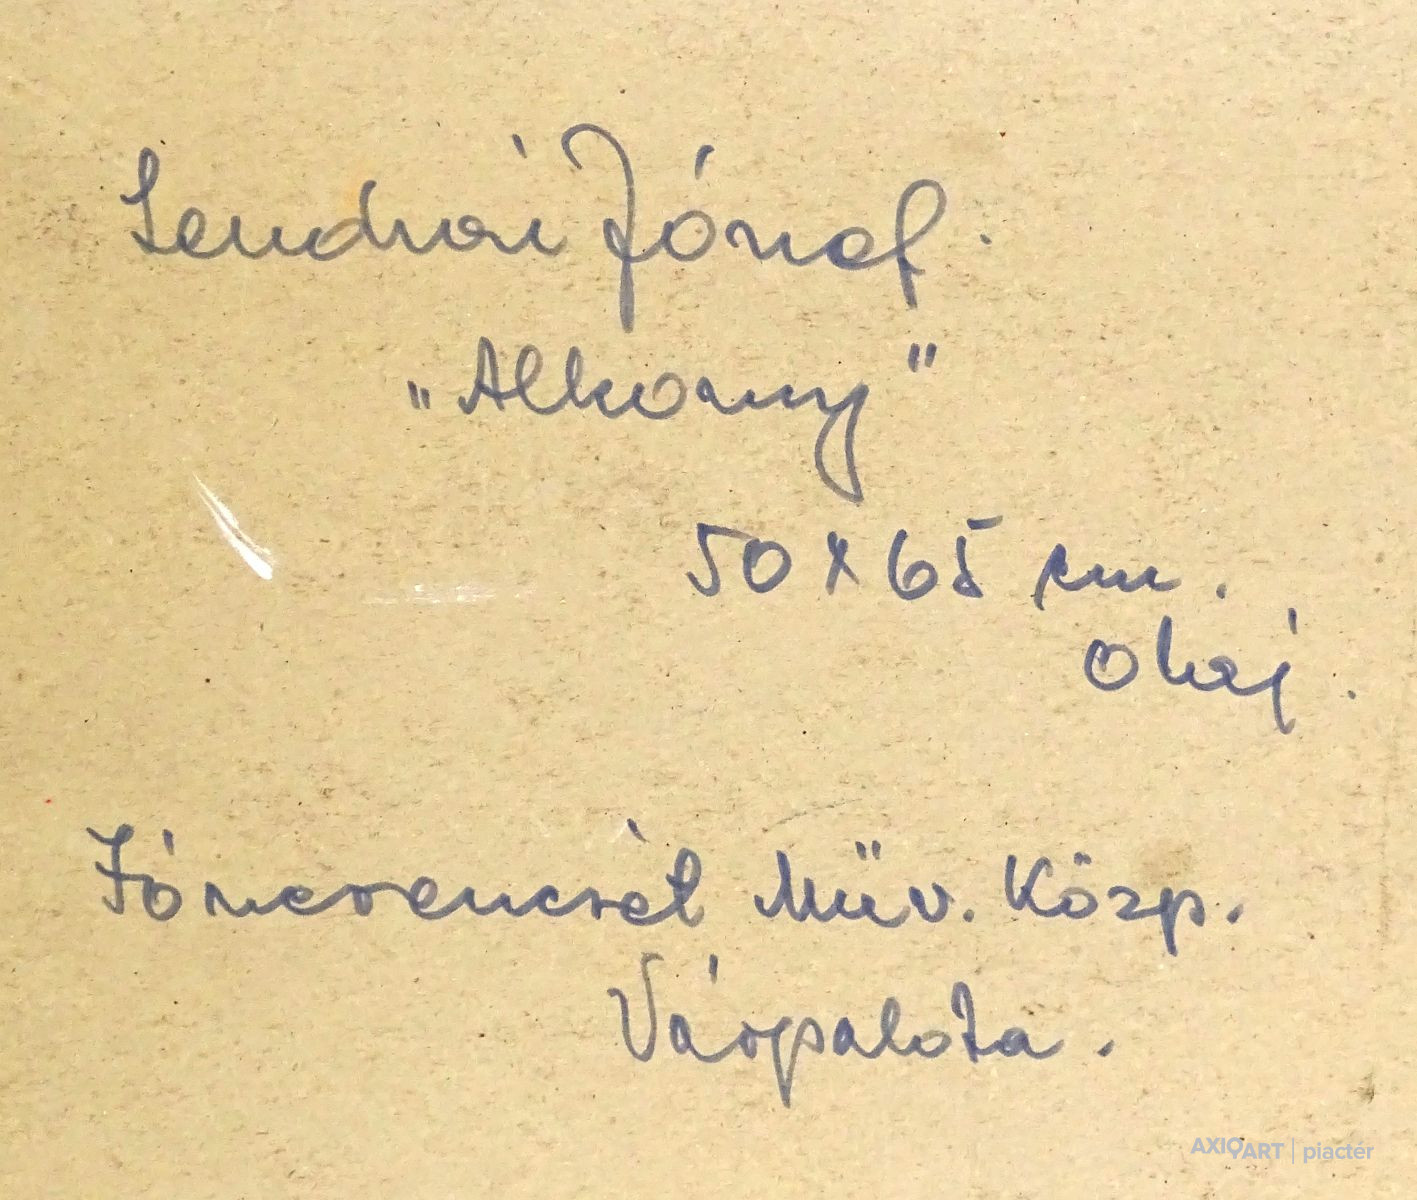 Lendvai József.
„Alkony"
50 x 65 cm.
Olaj.
Műv. Közp.
Várpalota.
AXIOART | piactér